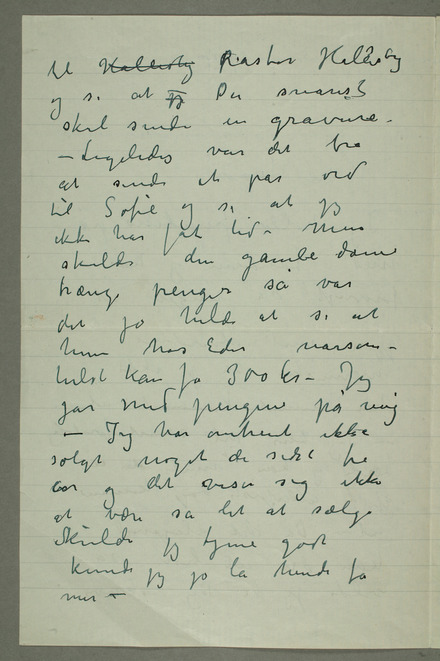 til Hallesby Pastor Hallesby
og si at jeg De snarest
skal sende en gravure.
– Ligeledes var det bra
at sende et par ord
til Sofie og si at jeg
ikke har fåt tid – men
skulde den gamle dame
trænge penger så var
det jo heller at si at
hun hos Eder narsom-
helst kan få 300 kr – Jeg
gar med pengene på mig
– Jeg har omtrent ikke
solgt noget de sidste tre
aar og det viser sig ikke
at være så let at sælge
Skulde jeg tjene godt
kunde jeg jo la hende få
mer –